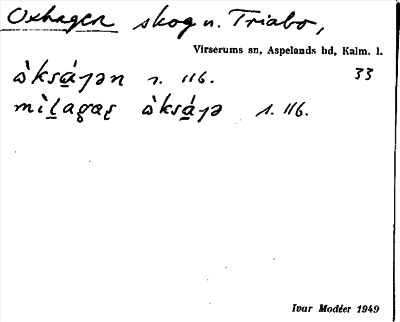 Oxhagen skog n. Triabo,
Virserums sn, Aspelands hd, Kalm. l.
33
òksáɟən s. 116.
mìlagas òksáɟə s. 116.
Ivar Modéer 1949